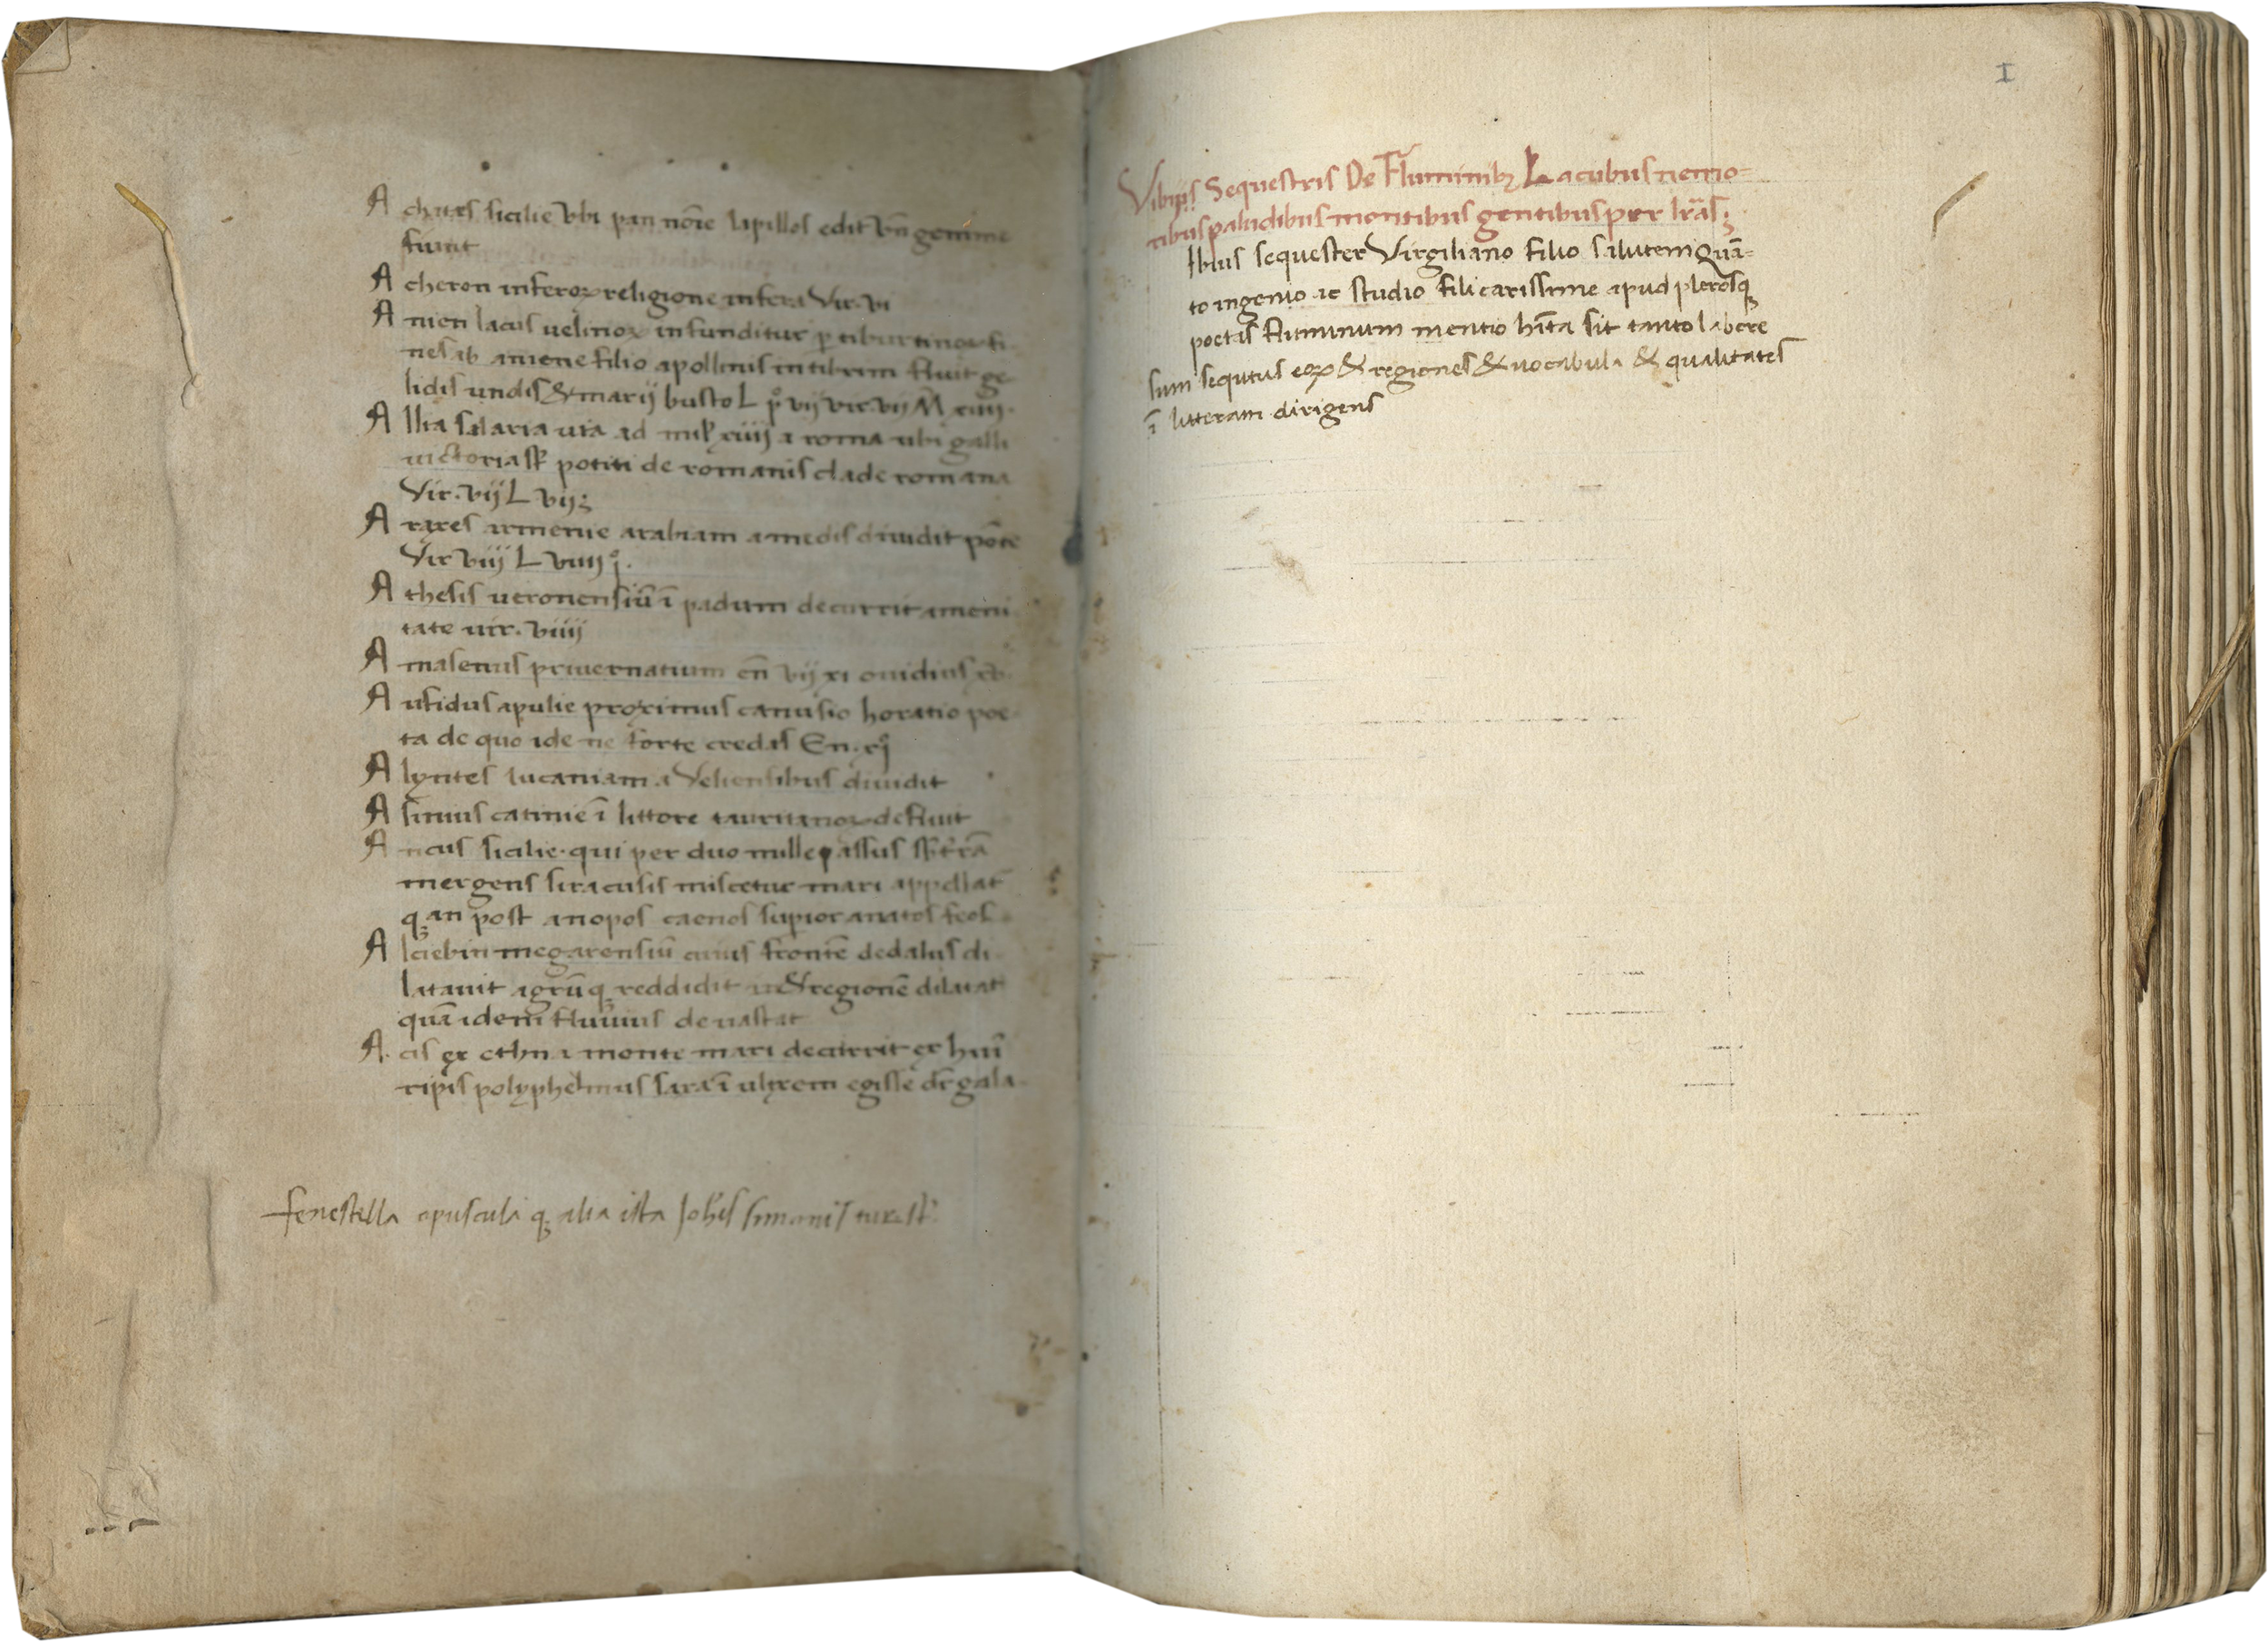 A chates sicilie vbi pan nōīe lapillos edit vn̄ gemme
fiunt
A cheron inferoꝝ religione infera Vir. vi
A nien lacus uelinoꝝ infunditur ꝑ tiburtinos fi
nes ab aniene filio apollinis in tibrim fluit ge
lidis undis & marij busto L pº vij vir. vij M xiiij.
A llia salaria uia ad mil xiiij a roma ubi galli
uictoria sꝶ potiti de romanis clade romana
Vir. vij L vij;
A raxes armenie arabiam a medis diuidit pōte
Vir viij L viiij
A thesis ueronensiū ī padum decurrit ameni
tate uir. viiij
A masenus priuernatium en̄ vij xi ouidius
A ufidus apulie proximus canusio horatio poe
ta de quo ide ne forte credas En. xj
A lyntes lucaniam a Veliensibus diuidit
A sinius catinie ī littore tauritanoꝝ defluit
A ncus sicilie. qui per duo mille passus
mergens siracusis miscetur mari appellat
qꝫ an post anopos caenos
A lciebin megarensiū cuius frontē dedalus di
latauit agrūqꝫ reddidit regionē diluat
quā idem fluuius deuastat
A. cis ex ethna monte mari decurrit ex huī
ripis polyphemus saxa ī ulixem egisse dr̄ gala
fenestella opuscula qꝫ alia ista Joh̄is simonis iur.
I
Vibijs Sequestris De Fluminibꝫ Lacubus nemo=
ribus paludibus montibus gentibus per lr̄as;
Ibius sequester Virgiliano filio salutem Quā=
to ingenio ac studio fili carissime apud plerosqꝫ
poetas fluminum mentio hīta sit tanto labore
sum sequtus eoꝝ & regiones & uocabula & qualitates
ī litteram dirigens